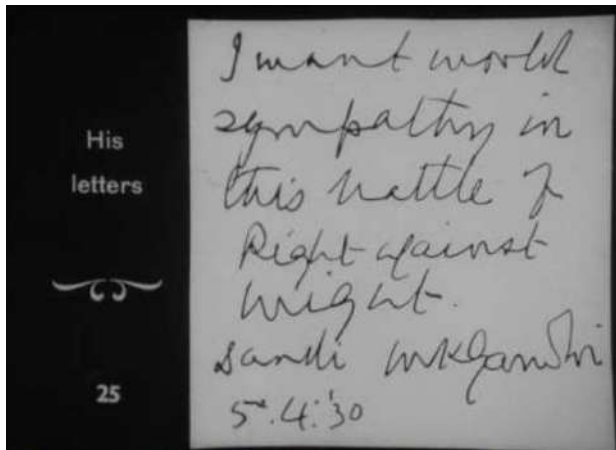 His
letters
25
I want world
sympathy in
this battle of
Right against
might.
Dandi MKGandhi
5.4.'30